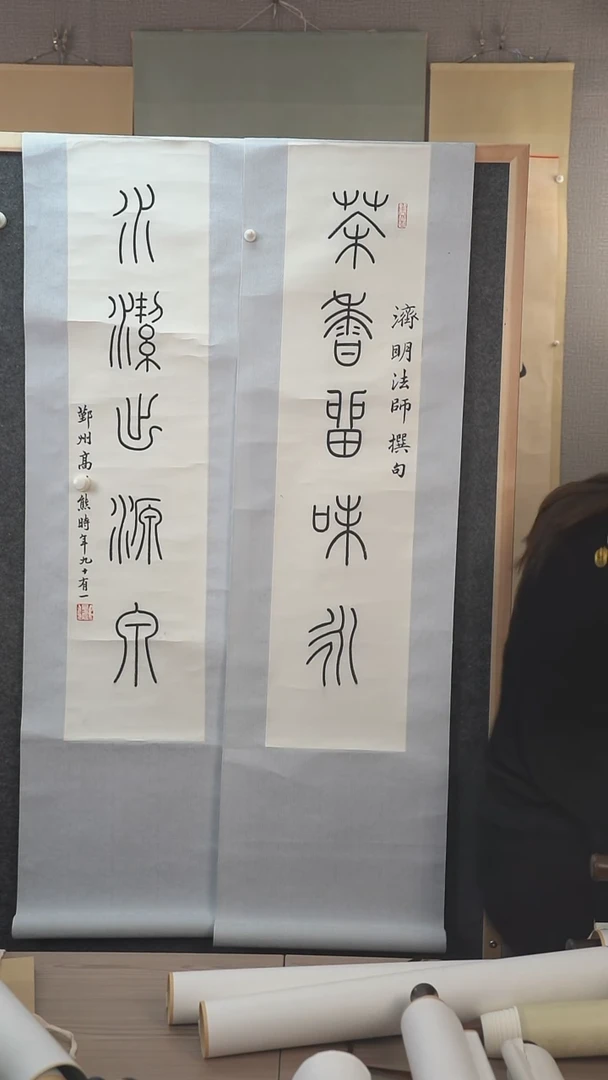 濟明法師撰句
茶香畱味永
水潔出源泉
鄞州高熊時年九十有一